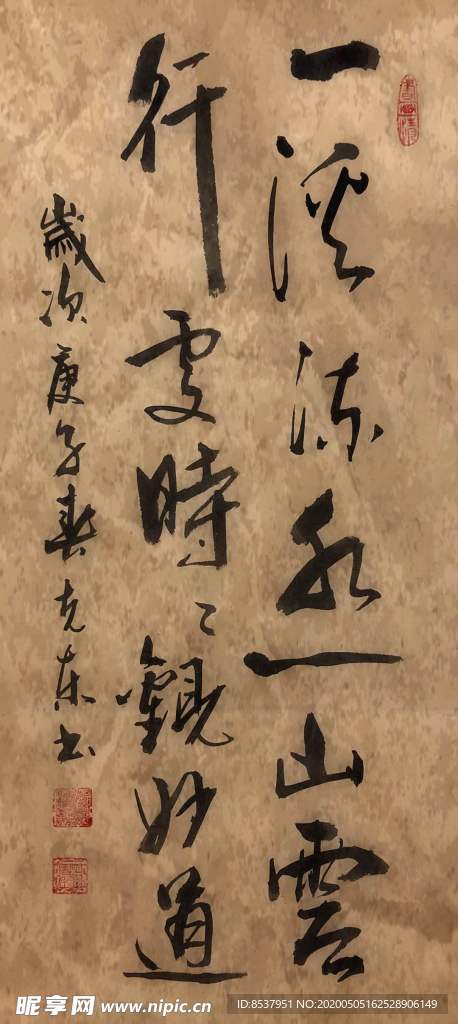 一溪流水一山雲
行處時〻觀妙道
歲次庚子春克东书
昵享网 www.nipic.cn
ID:8537951 NO:20200505162528906149